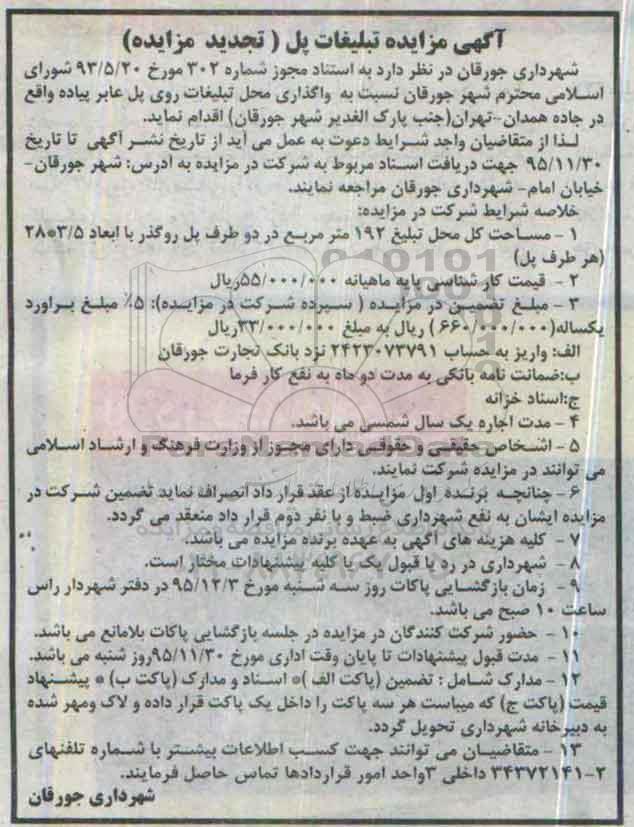 آگهی مزایده تبلیغات پل ( تجدید مزایده)
شهرداری جورقان در نظر دارد به استناد مجوز شماره ۳۰۲ مورخ ۹۳/۵/۲۰ شورای
اسلامی محترم شهر جورقان نسبت به واگذاری محل تبلیغات روی پل عابر پیاده واقع
در جاده همدان-تهران(جنب پارک الغدیر شهر جورقان) اقدام نماید.
لذا از متقاضیان واجد شرایط دعوت به عمل می آید از تاریخ نشر آگهی تا تاریخ
۹۵/۱۱/۳۰ جهت دریافت اسناد مربوط به شرکت در مزایده به آدرس: شهر جورقان-
خیابان امام- شهرداری جورقان مراجعه نمایند.
خلاصه شرایط شرکت در مزایده:
۱ - مساحت کل محل تبلیغ ۱۹۲ متر مربع در دو طرف پل روگذر با ابعاد ۳/۵*۲۸
(هر طرف پل)
۲ - قیمت کارشناسی پایه ماهیانه ۵۵/۰۰۰/۰۰۰ریال
۳ - مبلغ تضمین در مزایده ( سپرده شرکت در مزایده): ۵٪ مبلغ براورد
یکساله(۶۶۰/۰۰۰/۰۰۰ ) ریال به مبلغ ۳۳/۰۰۰/۰۰۰ریال
الف: واریز به حساب ۲۴۲۳۰۷۳۷۹۱ نزد بانک تجارت جورقان
ب:ضمانت نامه بانکی به مدت دو ماه به نفع کار فرما
ج:اسناد خزانه
۴ - مدت اجاره یک سال شمسی می باشد.
۵ - اشخاص حقیقی و حقوقی دارای مجوز از وزارت فرهنگ و ارشاد اسلامی
می توانند در مزایده شرکت نمایند.
۶ - چنانچه برنده اول مزایده از عقد قرار داد انصراف نماید تضمین شرکت در
مزایده ایشان به نفع شهرداری ضبط و با نفر دوم قرار داد منعقد می گردد.
۷ - کلیه هزینه های آگهی به عهده برنده مزایده می باشد.
۸ - شهرداری در رد یا قبول یک یا کلیه پیشنهادات مختار است.
۹ - زمان بازگشایی پاکات روز سه شنبه مورخ ۹۵/۱۲/۳ در دفتر شهردار راس
ساعت ۱۰ صبح می باشد.
۱۰ - حضور شرکت کنندگان در مزایده در جلسه بازگشایی پاکات بلامانع می باشد.
۱۱ - مدت قبول پیشنهادات تا پایان وقت اداری مورخ ۹۵/۱۱/۳۰روز شنبه می باشد.
۱۲ - مدارک شامل : تضمین (پاکت الف )* اسناد و مدارک (پاکت ب) * پیشنهاد
قیمت (پاکت ج) که میباست هر سه پاکت را داخل یک پاکت قرار داده و لاک ومهر شده
به دبیرخانه شهرداری تحویل گردد.
۱۳ - متقاضیان می توانند جهت کسب اطلاعات بیشتر با شماره تلفنهای
۲-۳۴۳۷۲۱۴۱ داخلی ۳واحد امور قراردادها تماس حاصل فرمایند.
شهرداری جورقان